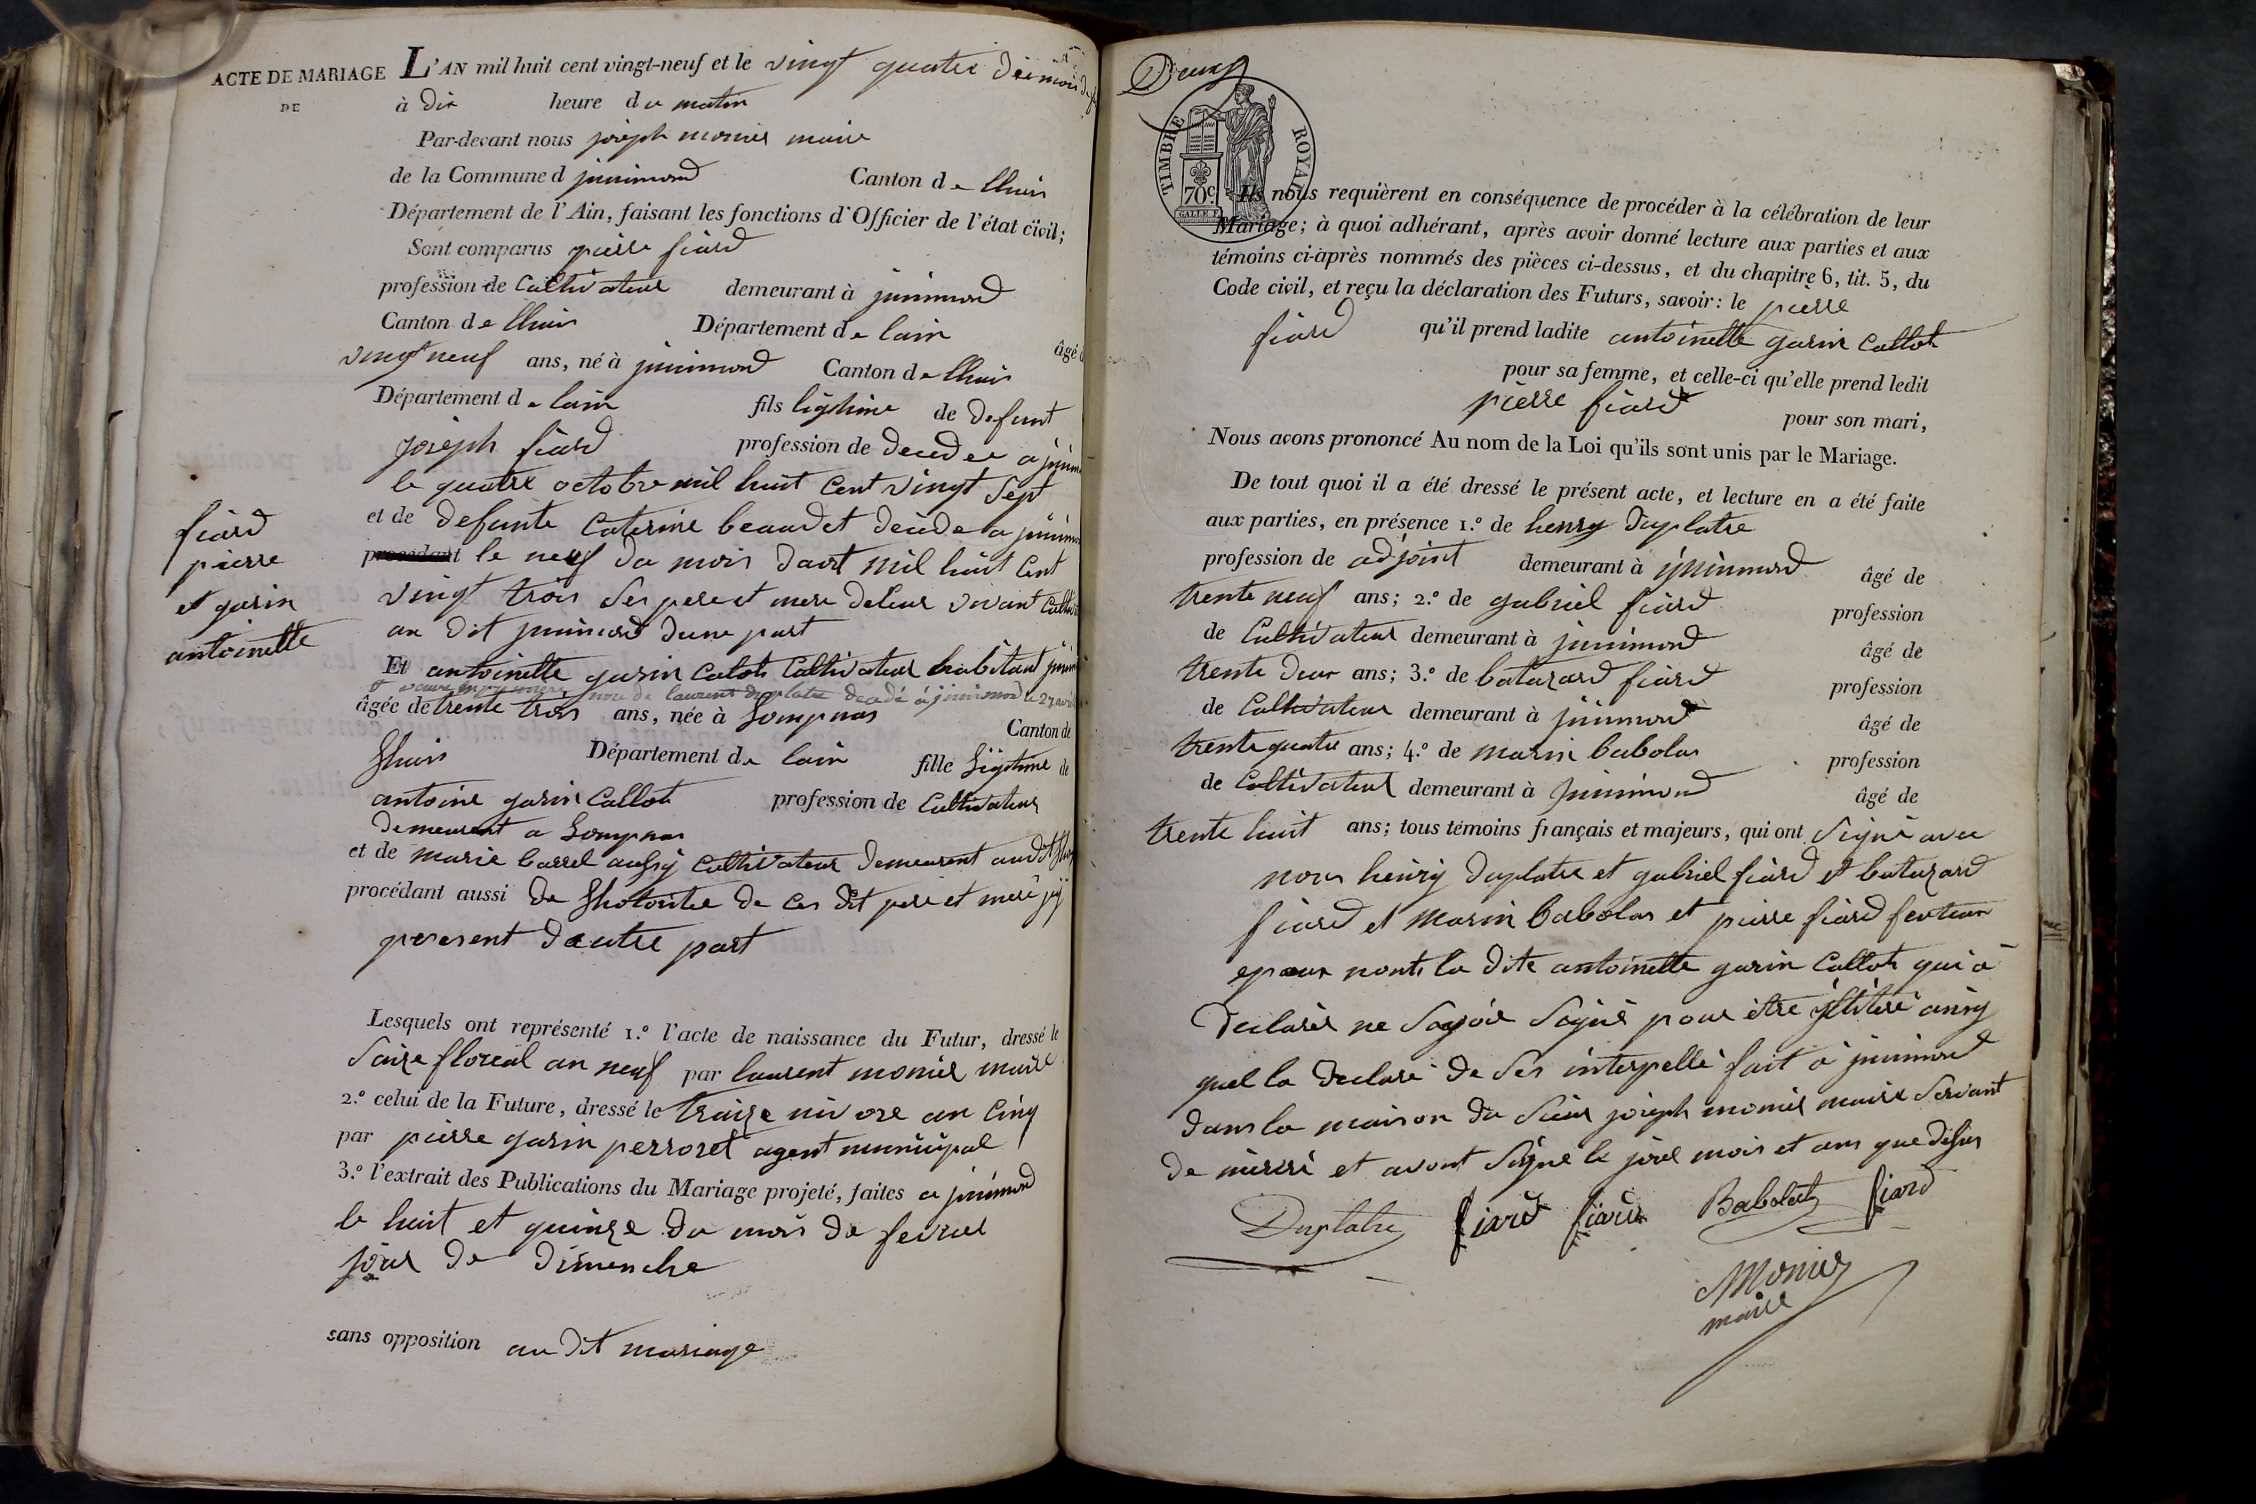 ACTE DE MARIAGE
DE
L'AN mil huit cent vingt-neuf et le vingt quatre du mois de
à dix heure du matin
Par-devant nous joseph monier maire
de la Commune d jnnimond Canton de lhuis
Département de l'Ain, faisant les fonctions d'Officier de l'état civil;
Sont comparus pierre fiard
profession de Cultivateur demeurant à jnnimond
Canton de lhuis Département de lain âgé
vingt neuf ans, né à jnnimond Canton de lhuis
Département de lain fils ligitime de defunt
joseph fiard profession de decedee a jnnim
le quatre octobre mil huit Cent vingt Sept
et de defunte Caterine beaudet decede a jnnim
procédant le neuf du mois daout mil huit Cent
vingt trois Ses pere et mere deleur vivant Cultiv
au dit jnnimond dune part
fiard
pierre
et garin
antoinette
Et antoinette garin Calot Cultivateur habitant jnnim
veuve de laurent duplatre decedé à jnnimond le 27 avril
âgée de trente trois ans, née à Lompnas Canton de
Lhuis Département de lain fille Ligitime de
antoine garin Callot profession de Cultivateur
demeurant a Lompnas
et de marie barrel aussy Cultivateur demeurant audit
procédant aussi de de ces dit pere et mere jcy
peresent dautre part
Lesquels ont représenté 1.º l'acte de naissance du Futur, dressé le
Saize floreal an neuf par laurent monier maire
2.º celui de la Future, dressé le traize nivose an Cinq
par pierre garin perroset agent municipal
3.º l'extrait des Publications du Mariage projeté, faites a jnnimond
le huit et quinze du mois de fevrier
jour de dimenche
sans opposition au dit mariage
Deux
TIMBRE ROYAL
70c
Ils nous requièrent en conséquence de procéder à la célébration de leur
Mariage; à quoi adhérant, après avoir donné lecture aux parties et aux
témoins ci-après nommés des pièces ci-dessus, et du chapitre 6, tit. 5, du
Code civil, et reçu la déclaration des Futurs, savoir: le pierre
fiard qu'il prend ladite antoinette garin Callot
pour sa femme, et celle-ci qu'elle prend ledit
pierre fiard pour son mari,
Nous avons prononcé Au nom de la Loi qu'ils sont unis par le Mariage.
De tout quoi il a été dressé le présent acte, et lecture en a été faite
aux parties, en présence 1.º de henry duplatre
profession de adjoint demeurant à jnnimond âgé de
trente neuf ans; 2.º de gabriel fiard profession
de Cultivateur demeurant à jnnimond âgé de
trente deux ans; 3.º de batazard fiard profession
de Cultivateur demeurant à jnnimond âgé de
trente quatre ans; 4.º de marin babolas profession
de Cultivateur demeurant à jnnimond âgé de
trente huit ans; tous témoins français et majeurs, qui ont Signé avec
nous henry duplatre et gabriel fiard et batazard
fiard et marin babolas et pierre fiard feuteur
epoux nonts la dite antoinette garin Callot qui a
declarér ne Savoir Signér pour être jlitéré ainsy
quel la declaré de Ses interpellé fait a jnnimond
dans la maison du Sieur joseph monier maire Servant
de mérie et avont Signe le jour mois et ans que dessus
Duplatre fiard fiard Babolat fiard
Monier
maire